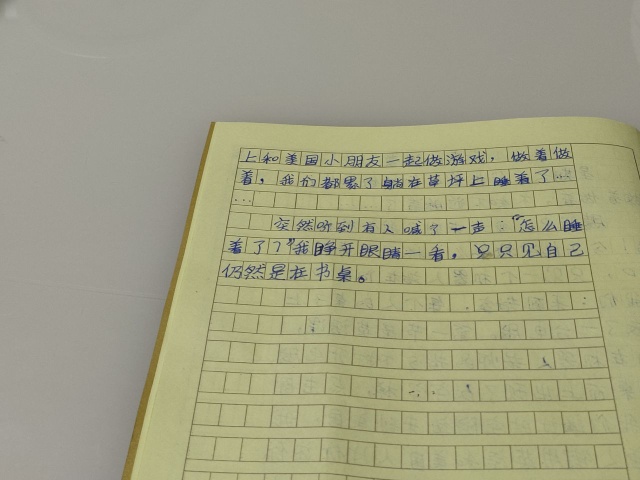 上和美国小朋友一起做游戏，做着做
着，我们都累了躺在草坪上睡着了…
…
突然听到有人喊了一声："怎么睡
着了？"我睁开眼睛一看，只只见自己
仍然是在书桌。